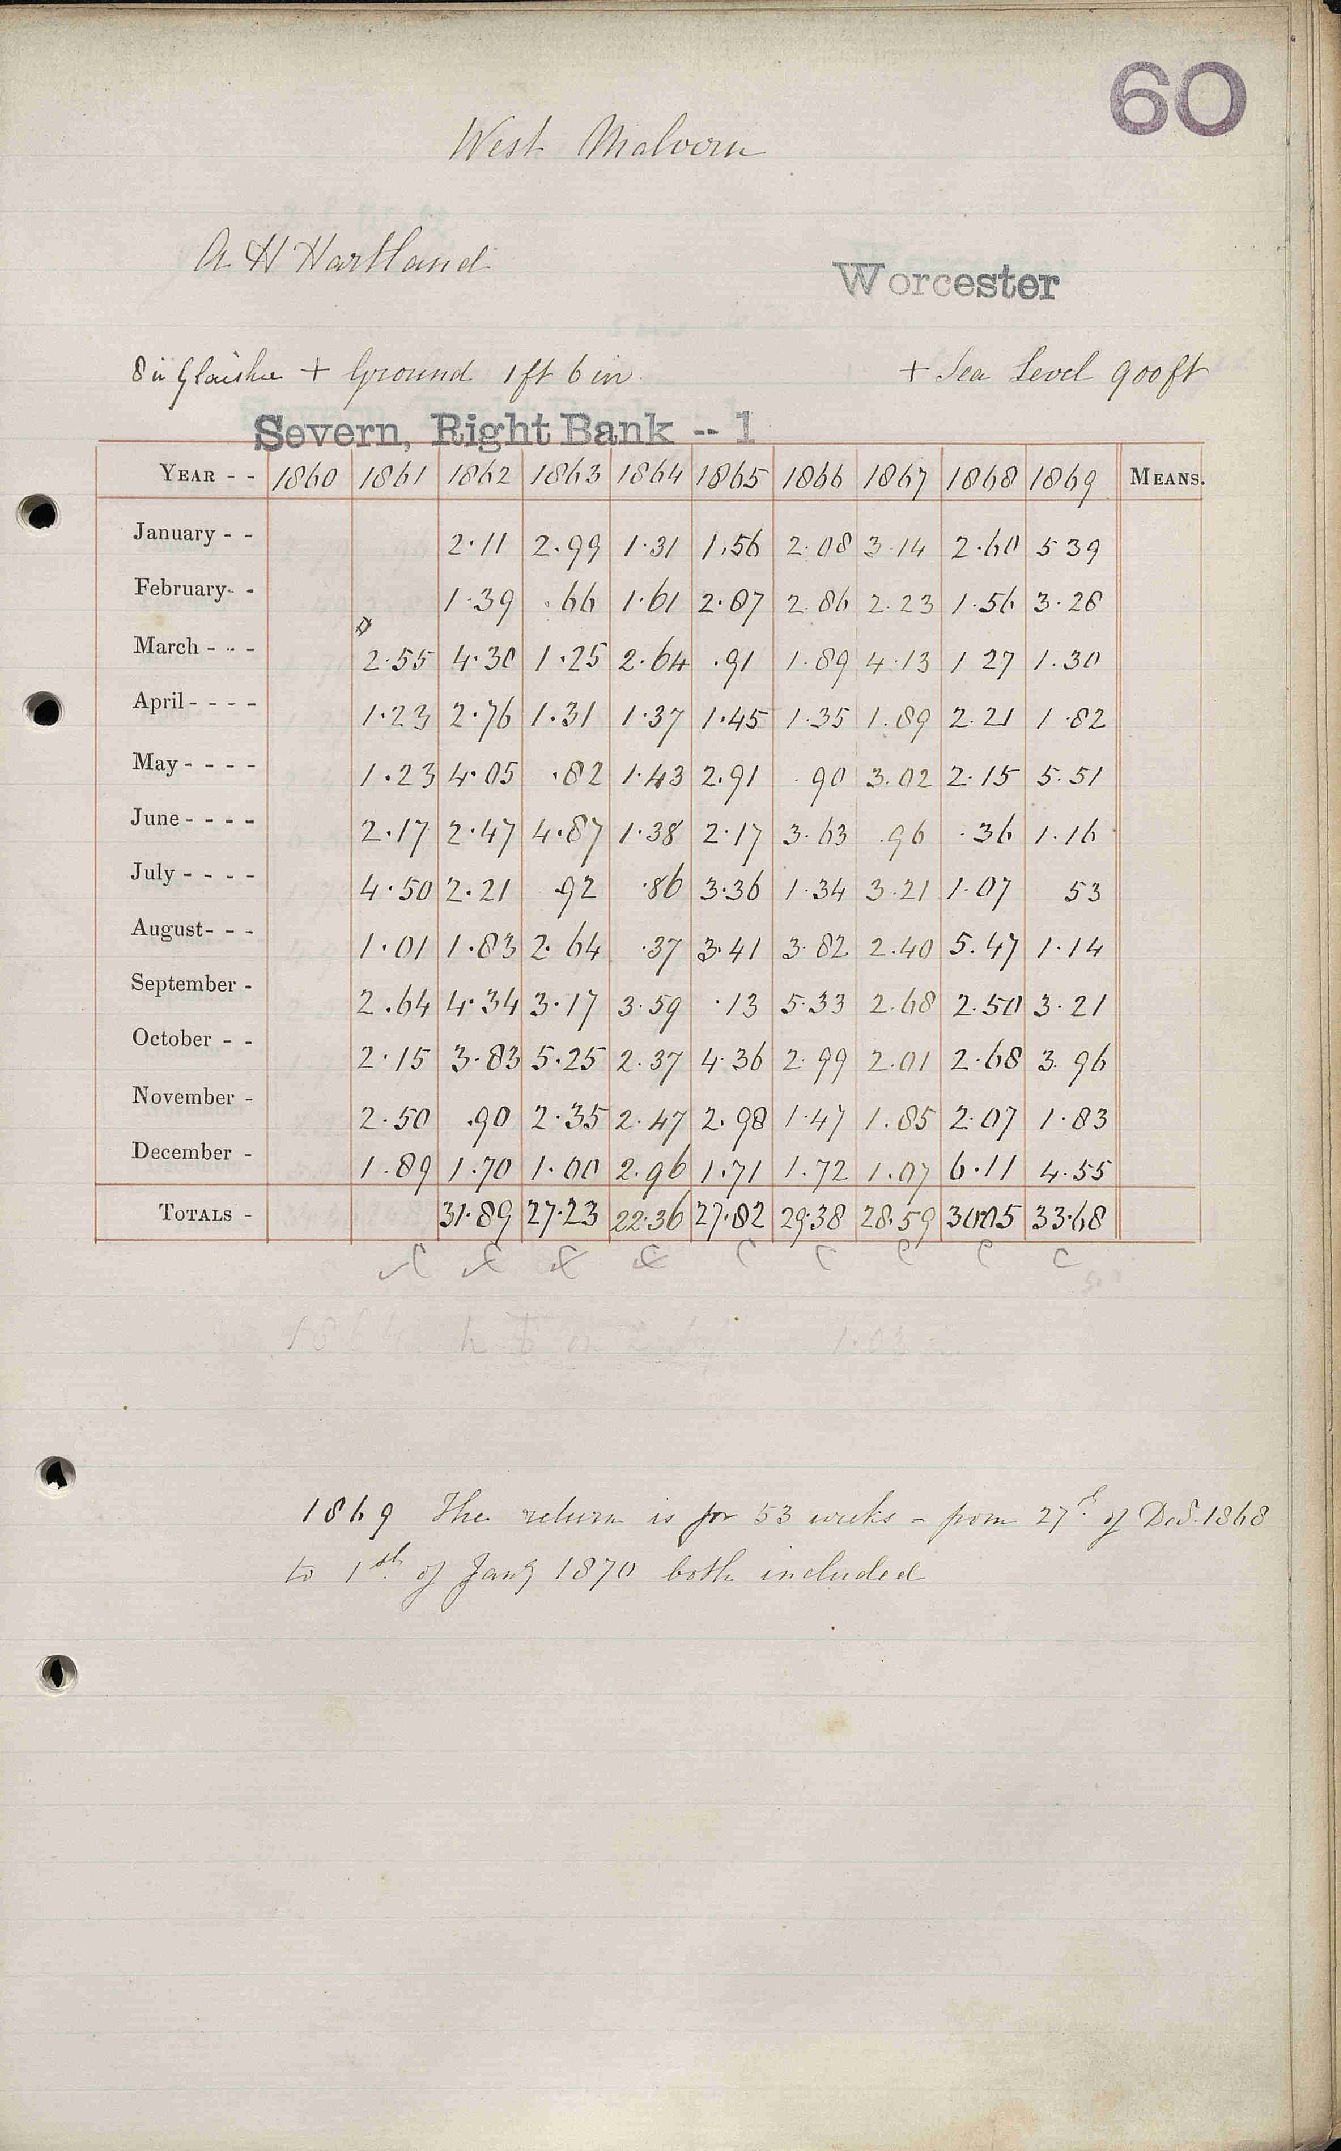 60
West Malvern
A H Hartland
Worcester
8 in Glaisher + Ground 1 ft 6 in + Sea Level 900 ft
Severn, Right Bank -- 1
YEAR - - 1860 1861 1862 1863 1864 1865 1866 1867 1868 1869 MEANS.
January - - 2.11 2.99 1.31 1.56 2.08 3.14 2.60 5 39
February- - 1.39 .66 1.61 2.87 2.86 2.23 1.56 3.28
March - - - 2.55 4.30 1.25 2.64 .91 1.89 4.13 1 27 1.30
April - - - - 1.23 2.76 1.31 1.37 1.45 1.35 1.89 2.21 1.82
May - - - - 1.23 4.05 .82 1.43 2.91 90 3.02 2.15 5.51
June - - - - 2.17 2.47 4.87 1.38 2.17 3.63 .96 .36 1.16
July - - - - 4.50 2.21 .92 .86 3.36 1.34 3.21 1.07 53
August- - - 1.01 1.83 2.64 .37 3.41 3.82 2.40 5.47 1.14
September - 2.64 4.34 3.17 3.59 .13 5.33 2.68 2.50 3.21
October - - 2.15 3.83 5.25 2.37 4.36 2.99 2.01 2.68 3.96
November - 2.50 .90 2.35 2.47 2.98 1.47 1.85 2.07 1.83
December - 1.89 1.70 1.00 2.96 1.71 1.72 1.07 6.11 4.55
TOTALS - 31.89 27.23 22.36 27.82 29.38 28.59 30.05 33.68
C C C C C C C C C
1869 The return is for 53 weeks - from 27th of Dec. 1868
to 1st of Jany 1870 both included